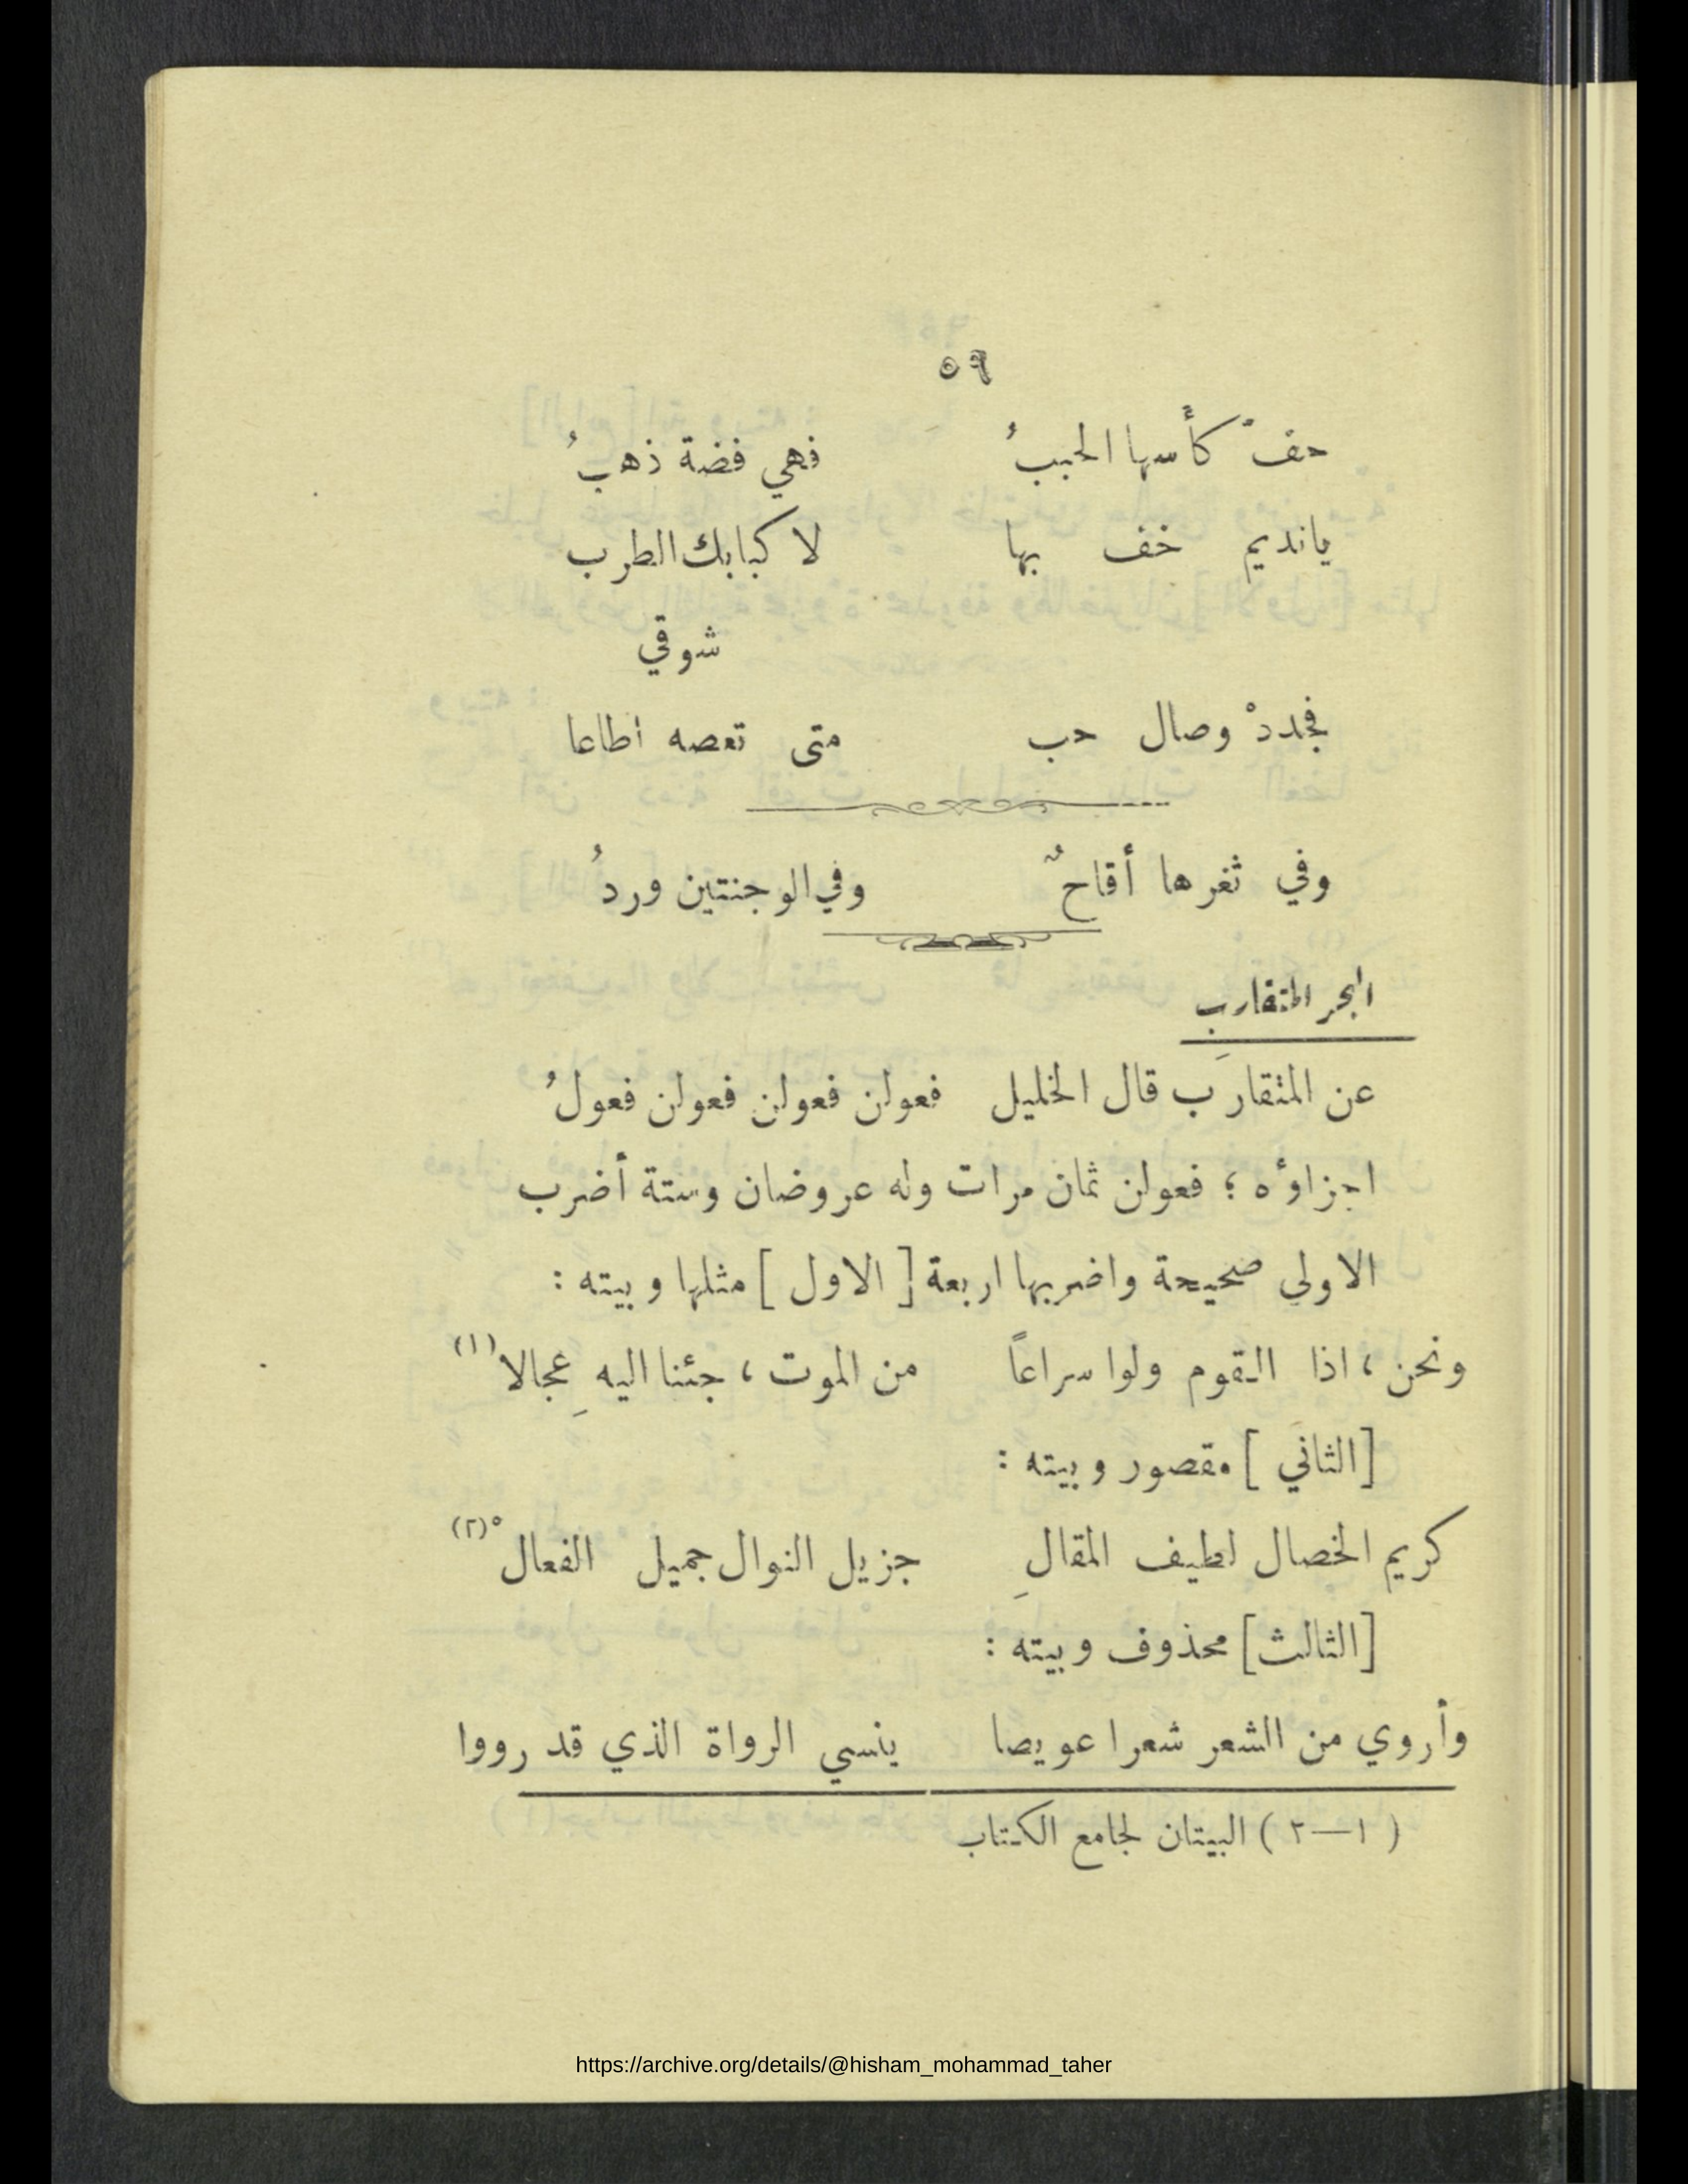 ٥٩
حفّ كأسها الحببُ فهي فضة ذهبُ
يانديم خف بها لا كبابك الطرب
شوقي
فجددْ وصال حب متى تعصه أطاعا
وفي ثغرها أقاحٌ وفي الوجنتين وردُ
البحر المتقارب
عن المتقارَب قال الخليل فعولن فعولن فعولن فعولُ
اجزاؤه ؛ فعولن ثمان مرات وله عروضان وستة أضرب
الاولي صحيحة واضربها اربعة [ الاول ] مثلها وبيته :
ونحن ، اذا القوم ولوا سراعاً من الموت ، جئنا اليه عِجالا (١)
[الثاني ] مقصور وبيته :
كريم الخصال لطيف المقالِ جزيل النوال جميل الفعالْ (٢)
[الثالث] محذوف وبيته :
وأروي من الشعر شعرا عويصا ينسي الرواة الذي قد رووا
( ١—٢ ) البيتان لجامع الكتاب
https://archive.org/details/@hisham_mohammad_taher